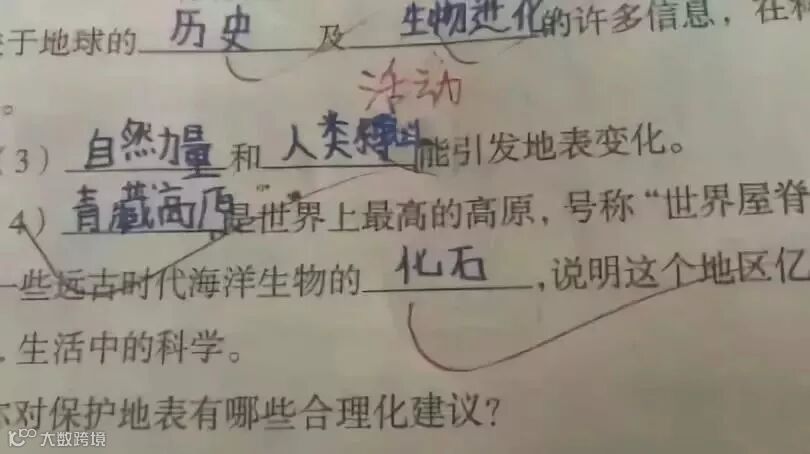 于地球的 历史 及 生物进化 的许多信息，在
活动
。
（3）自然力量 和 人类 能引发地表变化。
4）青藏高原 是世界上最高的高原，号称“世界屋脊
一些远古时代海洋生物的 化石，说明这个地区亿
．生活中的科学。
你对保护地表有哪些合理化建议？
大数跨境